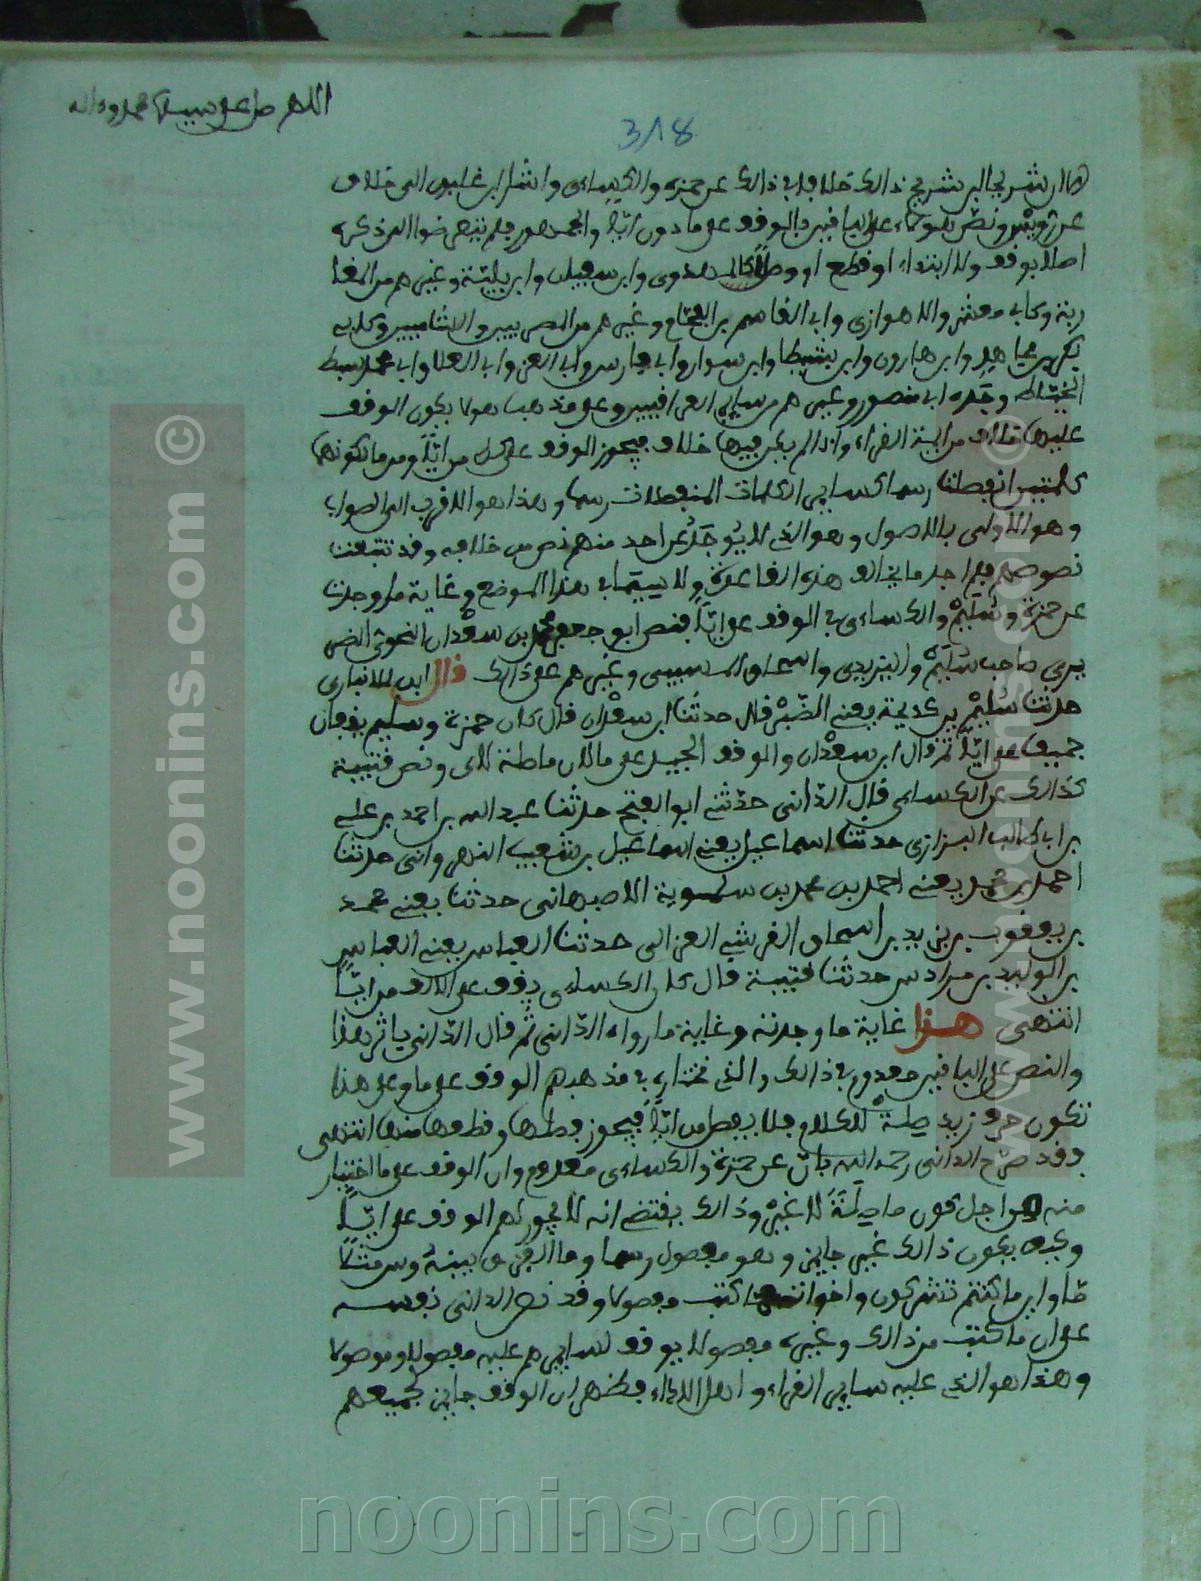 اللهم صل على سيدنا محمد وءاله
318
هما ابن شريح في ذلك خلافا في ذلك عن حمزة والكسائي وأشار ابن غلبون إلى خلاف
عن رويس ونص هو على الباقين بالوقف على ما دون أيا والجمهور فلم يتعرضوا إلى ذكره
أصلا بوقف ولا ابتداء أو قطع أو وصل كالمهدوي وابن سفيان وابن بليمة وغيرهم من المغا
ربة وكأبي معشر والأهوازي وأبي القاسم بن الفحام وغيرهم من المصريين والشاميين وكأبي
بكر بن مجاهد وابن مهران وابن شيطا وابن سوار وأبي العز وأبي العلا وأبي محمد سبط
الخياط وجده أبي منصور وغيرهم من سائر العراقيين وعلى مذهب هؤلاء لا يكون الوقف
عليها خلاف من أئمة القراء وإذا لم يكن فيها خلاف فيجوز الوقف على كل من أيا ومن ما لكونهما
كلمتين انفصلتا رسما كسائر الكلمات المنفصلات رسما وهذا هو الأقرب إلى الصواب
وهو الأولى بالأصول وهو الذي لا يوجد عن أحد منهم نص من خلافه وقد تتبعت
نصوصهم فلم أجد ما يخالف هذه القاعدة ولا سيما في هذا الموضع وغاية ما وجدت
عن حمزة وسليم والكسائي في الوقف على أيا فنص أبو جعفر محمد بن سعدان النحوي الضر
ير صاحب سليم واليزيدي وإسحاق المسيبي وغيرهم على ذلك قال ابن الأنباري
حدثنا سليمن بن يحيى يعني الضبي قال حدثنا ابن سعدان قال كان حمزة وسليم يقفان
جميعا على أيا ثم قال ابن سعدان والوقف الجيد على ما لأن ما صلة لأي ونص قتيبة
كذلك عن الكسائي قال الداني حدثني أبو الفتح حدثنا عبد الله بن أحمد بن علي
بن أبي طالب البزازي حدثنا إسماعيل يعني إسماعيل بن شعيب النهرواني حدثنا
أحمد بن محمد يعني أحمد بن محمد بن سلموية الأصبهاني حدثنا يعني محمد
بن يعقوب بن يزيد بن إسحاق القرشي الغزالي حدثنا العباس يعني العباس
بن الوليد بن مرداس حدثنا قتيبة قال كان الكسائي يقف على الألف من أيا
انتهى هذا غاية ما وجدته وغاية ما رواه الداني ثم قال الداني بإثر هذا
والنص على الباقين معدوم في ذلك والذي نختاره في مذهبهم الوقف على ما وعلى هذا
تكون حرفا زيد صلة للكلام فلا يفصل من أيا فيجوز فصلها وقطعها منها انتهى
وقد صرح الداني رحمه الله بأن عن حمزة والكسائي معدوم وأن الوقف على ما اختيار
منه من أجل كون ما صلة لا غير وذلك يقتضي أنه لا يجوز لهم الوقف على أيا
وكيف يكون ذلك غير جائز وهو مفصول رسما وما الفرق بينه وبين مثلا
ما وأين ما كنتم تشركون وأخواته مما كتب مفصولا وقد نص الداني نفسه
على أن ما كتب من ذلك وغيره مفصولا يوقف لسائرهم عليه مفصولا وموصولا
وهذا هو الذي عليه سائر القراء وأهل الأداء فظهر أن الوقف جائز لجميعهم
www.noonins.com ©
www.noonins.com ©
noonins.com